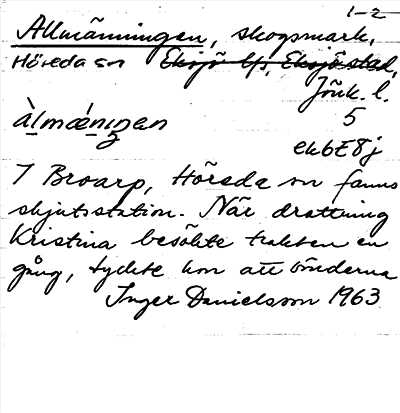 1-2
Allmänningen, skogsmark,
Höreda sn Eksjö lfs, Eksjö stad,
Jönk. l.
àlmǽnıŋen 5
ek6E8j
I Broarp, Höreda sn fanns
skjutsstation. När drottning
Kristina besökte trakten en
gång, tyckte hon att bönderna
Inger Danielsson 1963